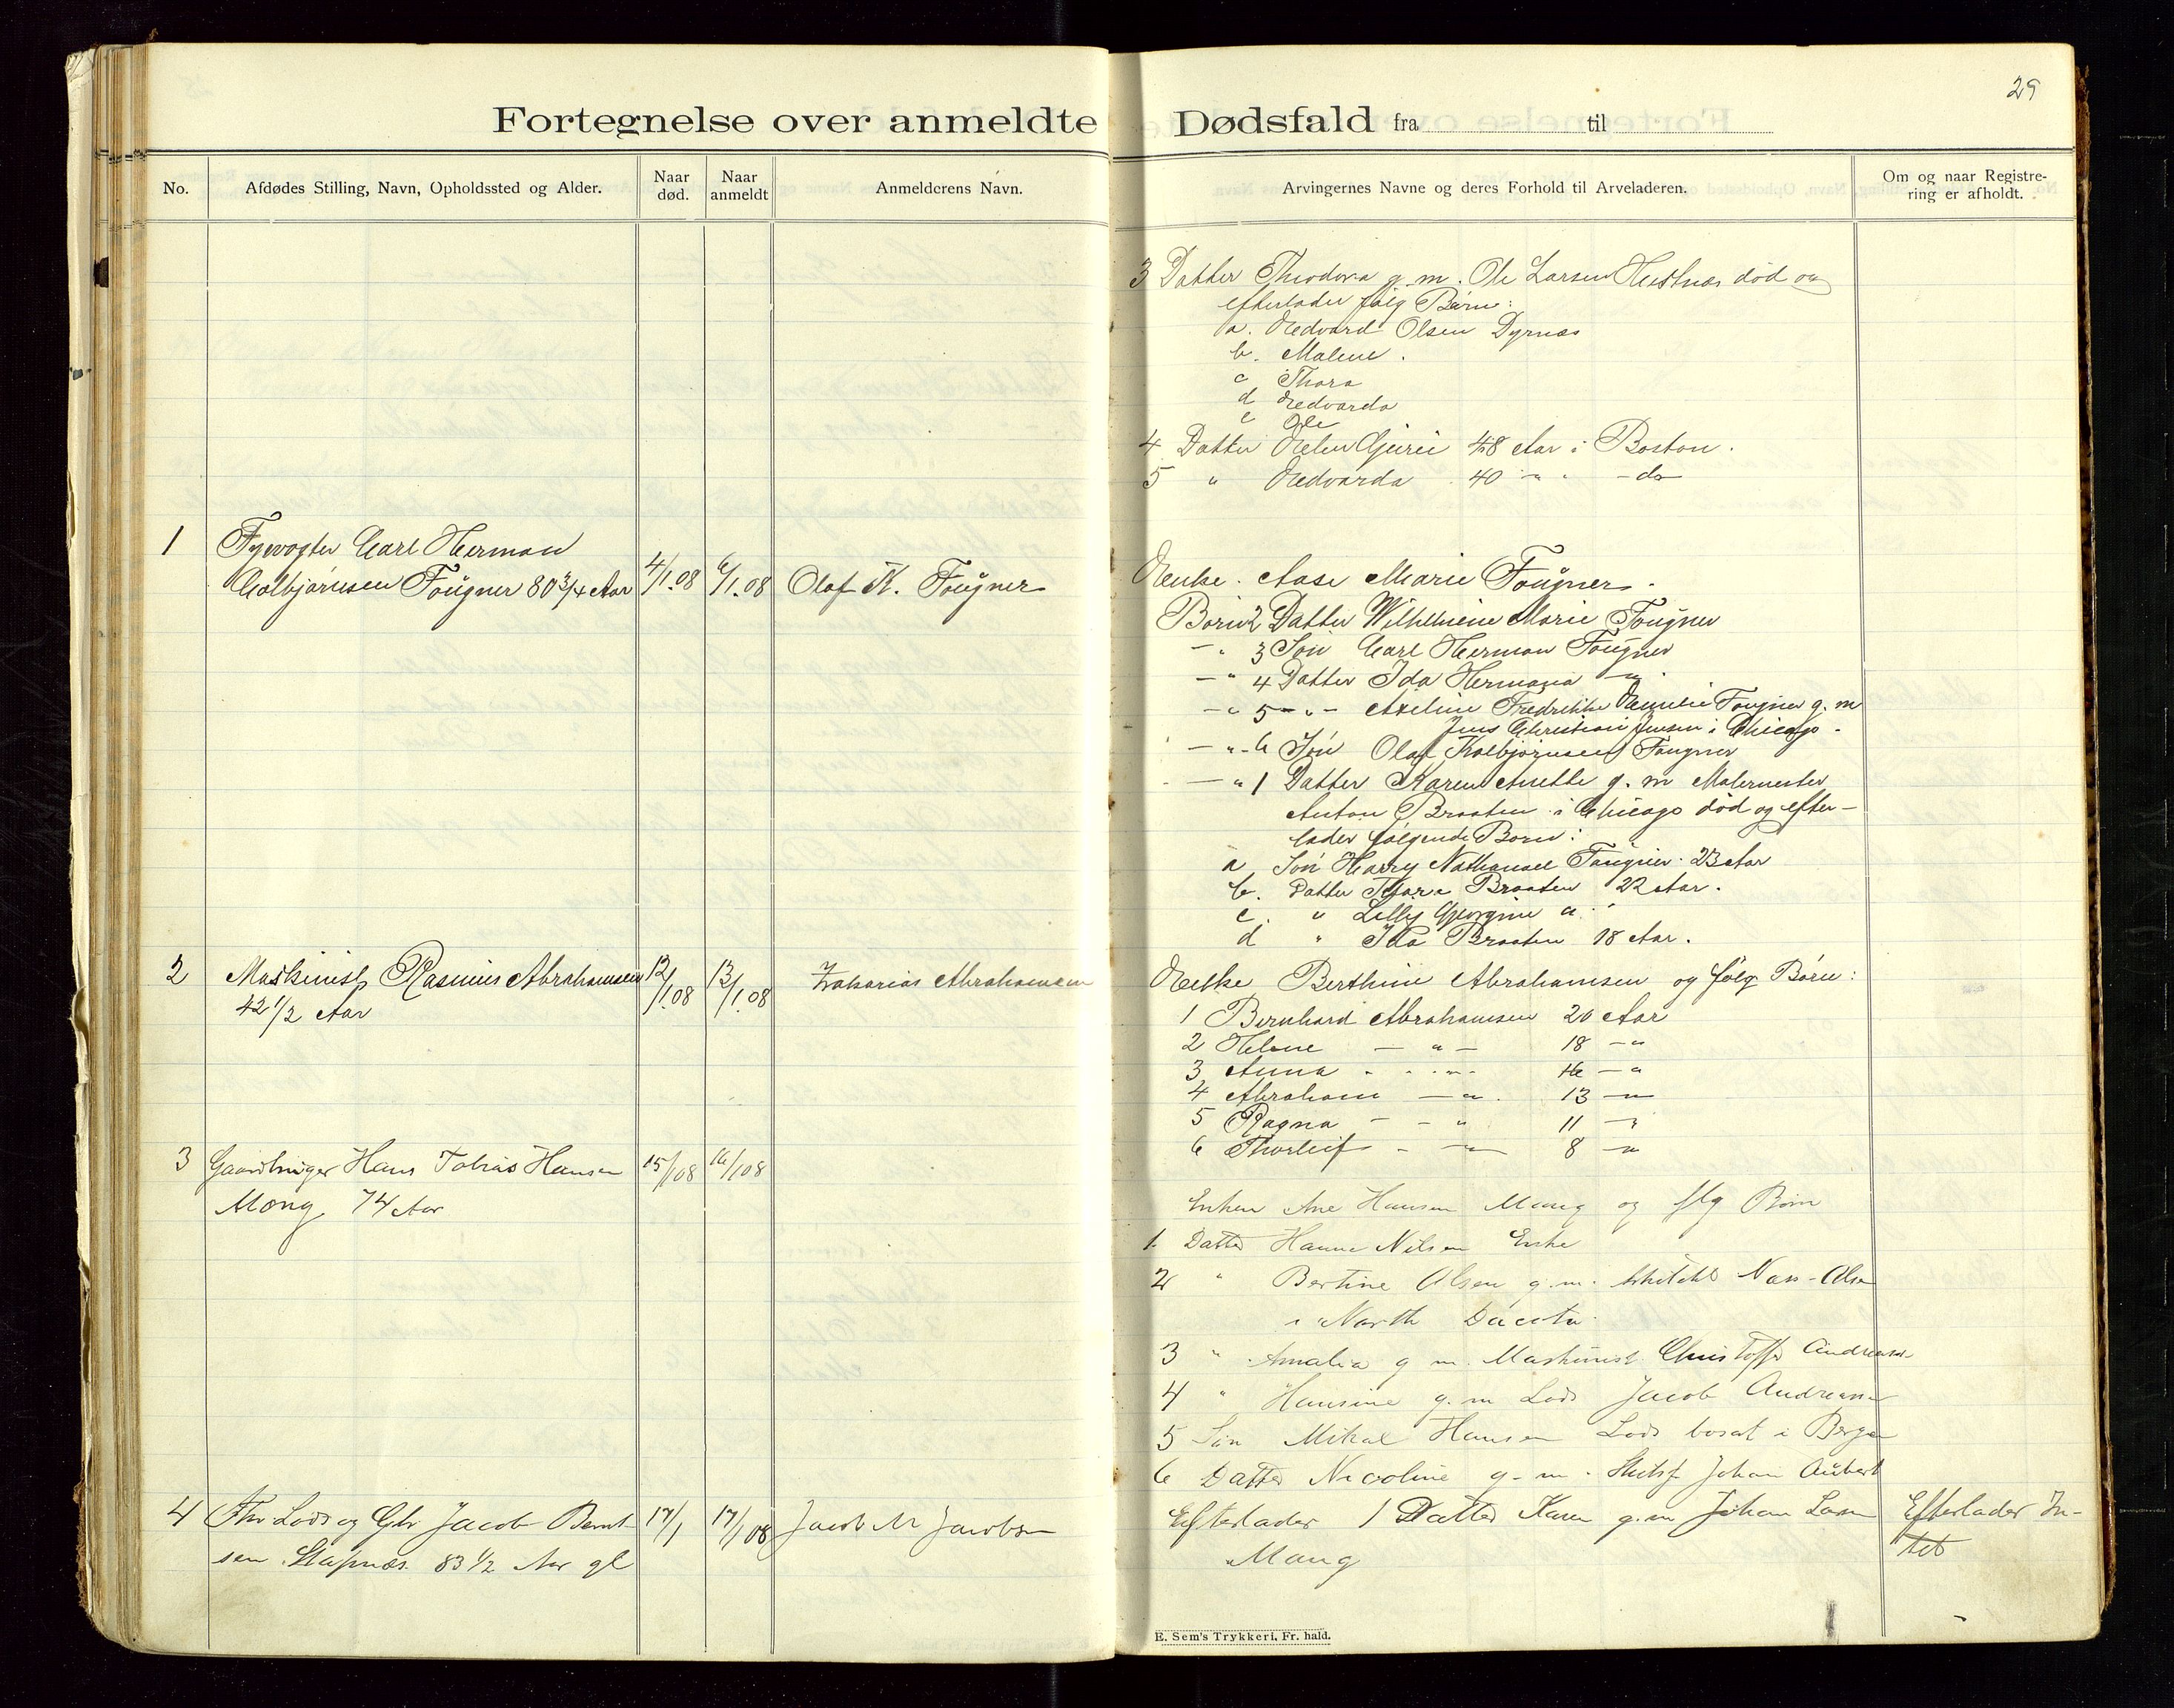 29
Fortegnelse over anmeldte Dødsfald fra til
No.
Afdødes Stilling, Navn, Opholdssted og Alder.
Naar død.
Naar anmeldt
Anmelderens Navn.
Arvingernes Navne og deres Forhold til Arveladeren.
Om og naar Registre-
ring er afholdt.
3 Datter Theodora g. m. Ole Larsen Hestnæs død og
efterlader følg Børn:
a. Edvard Olsen Dyrnæs
b. Malene.
c Thora
d Edvarda
e Ole
4 Datter 48 Aar i Boston.
5 " Edvarda 40 - " - do
1 Fyrvogter Carl Herman
Colbjørnsen Fougner 80 3/4 Aar 4/1.08 6/1.08 Olaf K. Fougner
Enke. Aase Marie Fougner.
Børn 2 Datter Wilhelmine Marie Fougner
- " 3 Søn Carl Herman Fougner
- " 4 Datter Ida Hermana - "
- " 5 - " - Axeline Fredrikke Emelie Fougner g. m
Jens Christian Jensen i Chicago -
- " - 6 Søn Olaf Kolbjørnsen Fougner
- " 1 Datter Karen Anette g. m Malermester
Anton Braaten i Chicago død og efter-
lader følgende Børn:
a Søn Harry Nathanael Fougner 23 Aar
b. Datter Thora Braaten 22 Aar.
c. " Lilly Georgine
d " Ida Braaten 18 Aar.
2 Maskinist Rasmus Abrahamsen 12/1.08 13/1.08 Zakarias Abrahamsen
42 1/2 Aar
Enke Berthine Abrahamsen og følg Børn:
1 Bernhard Abrahamsen 20 Aar
2 Helene - " - 18 - "
3 Anna - " - 16 - "
4 Abraham - " - 13 - "
5 Ragna - " 11 - "
6 Thorleif - " - 8 - "
3 Gaardbruger Hans Tobias Hansen 15/1 08 16/1 08
Mong 74 Aar
Enken Ane Hansen Mong og flg Børn
1. Datter Hanne Nilsen Enke
2 " Bertine Olsen g. m. Næs-Olsen
i North Dacota
3 " Amalia g m. Maskinist Christoffer Andreasen
4 " Hansine g. m Lods Jacob Andreassen
5 Søn Mikal Hansen Lods bosat i Bergen
6 Datter Nicoline g. m. Johan Aubert
4 Fhv Lods og Gbr Jacob Bernt- 17/1 17/1 08 Jacob M Jacobsen
sen Stapnæs. 83 1/2 Aar gl
Efterlader 1 Datter Karen g. m Johan Larsen
Mong
Efterlader In-
tet
E. Sem's Trykkeri, Fr. hald.